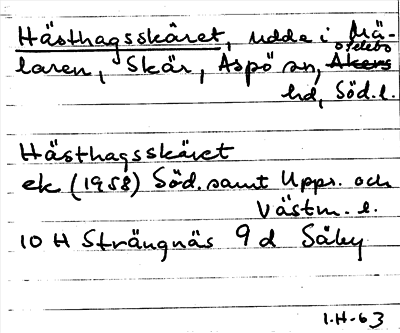 Hästhagsskäret, udde i Mä-
laren, Skär, Aspö sn, Åkers Österebo
hd, Söd.l.
Hästhagsskäret
ek (1958) Söd. samt Upps. och
Västm. l.
10 H Strängnäs 9 d Säby
I.H-63